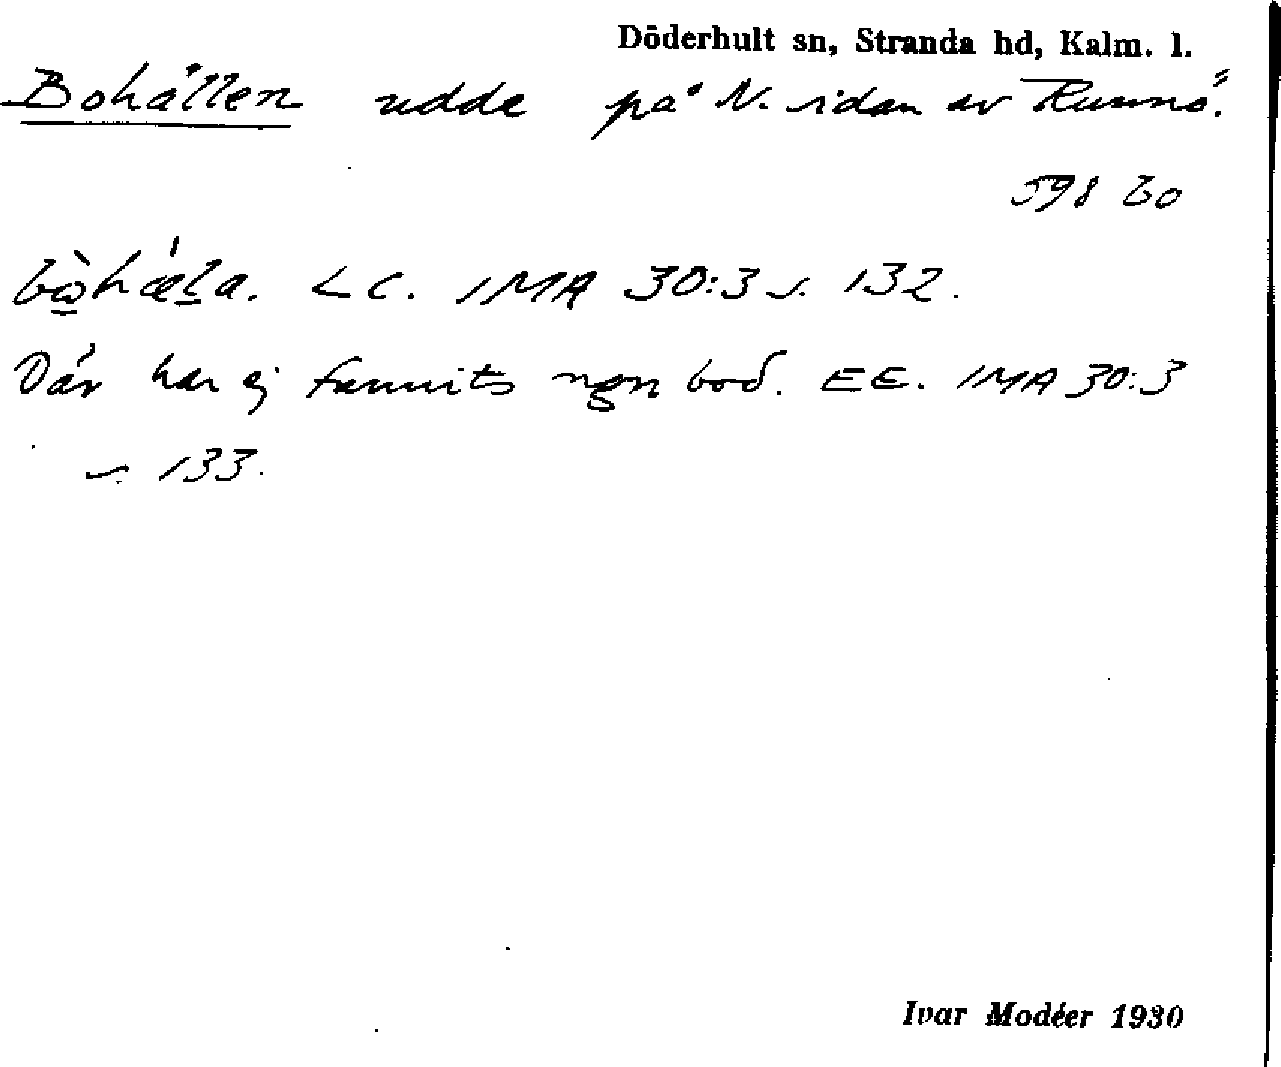 Döderhult sn, Stranda hd, Kalm. l.
Bohällen udde på N. sidan av Runnö.
598 bo
bòhæ̀la. LC. IMA 30:3 s. 132.
Där har ej funnits ngn bod. EE. IMA 30:3
s. 133.
Ivar Modéer 1930